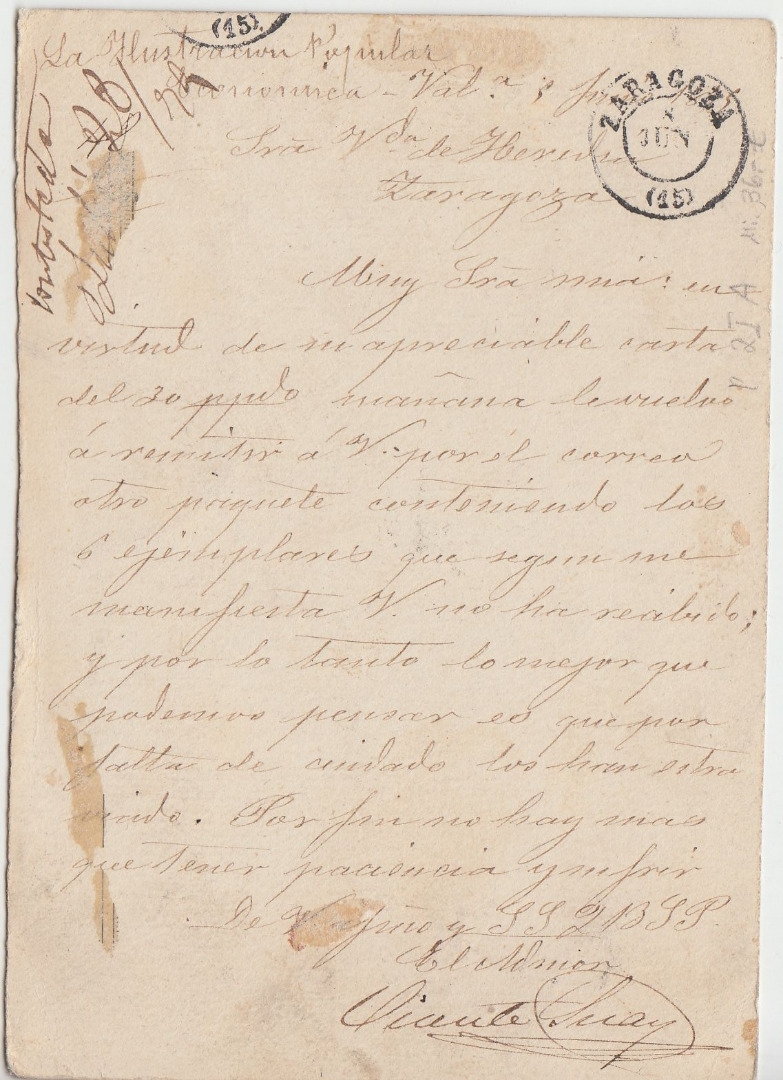 (15)
La Ilustracion Popular
Economica - Val.ª
ZARAGOZA
8
JUN
(15)
Sra Vda de Heredia
Zaragoza
contestada
Muy Sra mia: en
virtud de su apreciable carta
del 30 ppdo mañana le vuelvo
á remitir á V. por el correo
otro paquete conteniendo los
6 ejemplares que segun me
manifiesta V. no ha recibido;
y por lo tanto lo mejor que
podemos pensar es que por
falta de cuidado los han estra
viado. Por fin no hay mas
que tener paciencia y sufrir
De V afmo y S S Q B S P.
El Admor
Vicente Suay
Mi. 36r. C
21 A